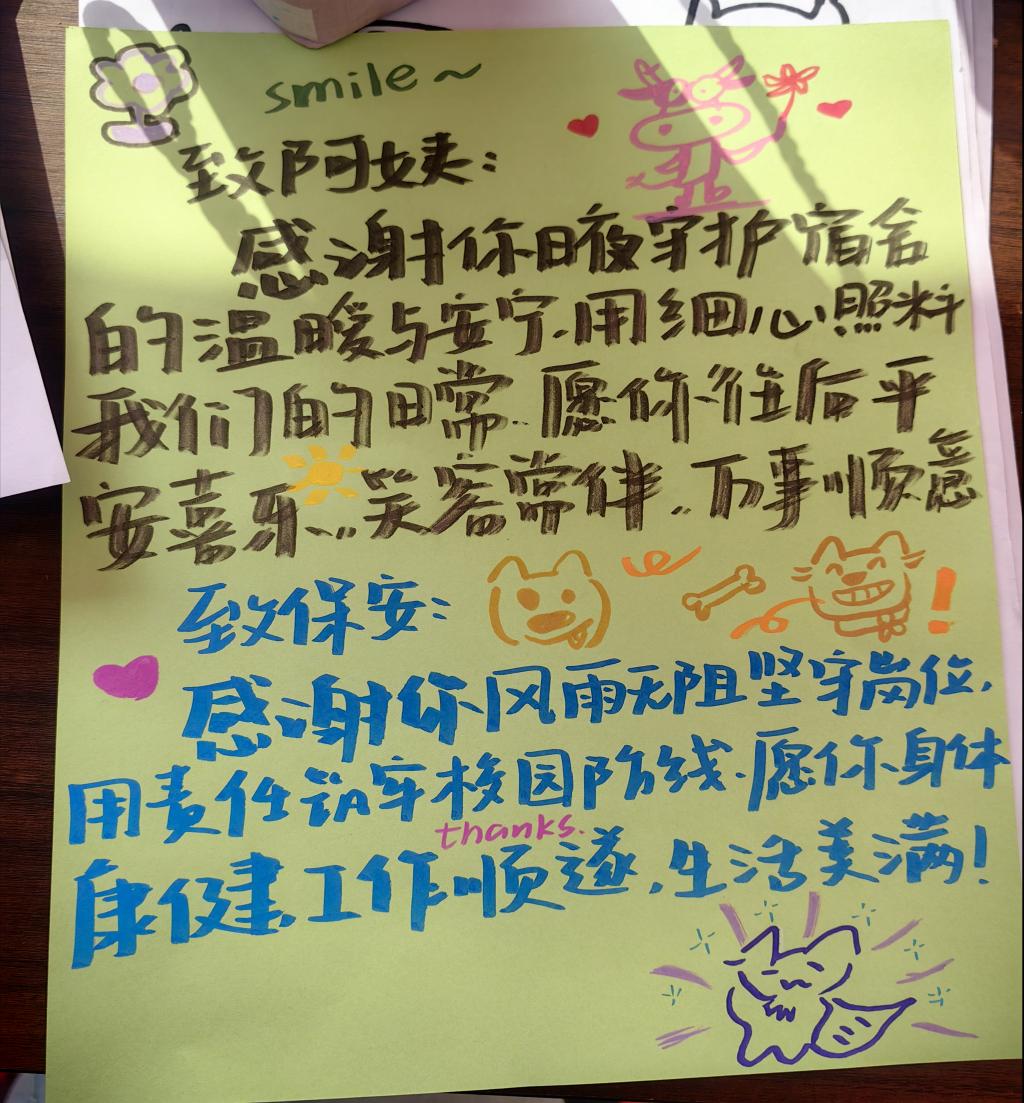 smile~
致阿姨:
感谢你日夜守护宿舍
的温暖与安宁.用细心照料
我们的日常.愿你往后平
安喜乐..笑容常伴.万事顺意
致保安:
感谢你风雨无阻坚守岗位.
用责任筑牢校园防线.愿你身体
thanks.
康健.工作顺遂.生活美满!